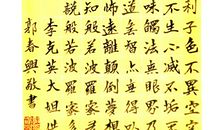 利子色不異空空
不生不滅不垢
味觸法無眼界
道無智亦無得
怖遠離顛倒夢
知般若波羅
說般若波羅蜜
李克英大
郭春興敬書